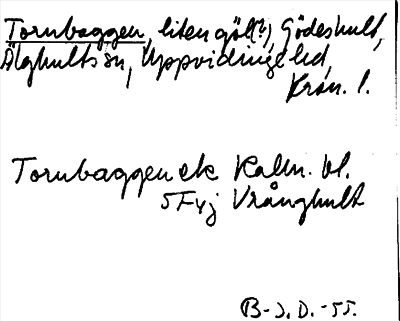 Tornbaggen, liten göl(?), Gödeshult,
Älghults sn, Uppvidinge hd,
Kron. l.
Tornbaggen ek. Kalm. bl.
5F4j Vrånghult
B-J.D.-55.